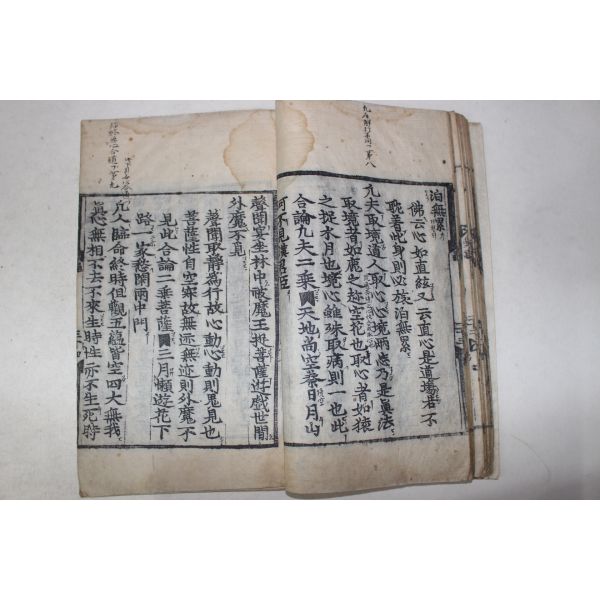 泊無累
佛云心如直絃又云直心是道場若不
耽着此身則必泛泊無累
凡夫取境道人取心心境兩忘乃是眞法
取境者如鹿之趁空花也取心者如猿
之捉水月也境心雖殊取病則一也此
合論凡夫二乘 天地尚空秦日月山
河不見漢君臣
聲聞宴坐林中被魔王捉菩薩遊戱世間
外魔不覓
聲聞取靜爲行故心動心動則鬼見也
菩薩性自空寂故無迹無迹則外魔不
見此合論二乘菩薩 三月懶遊花下
路一家愁閉雨中門
凡人臨命終時但觀五蘊皆空四大無我
眞心無相不去不來生時性亦不生死時